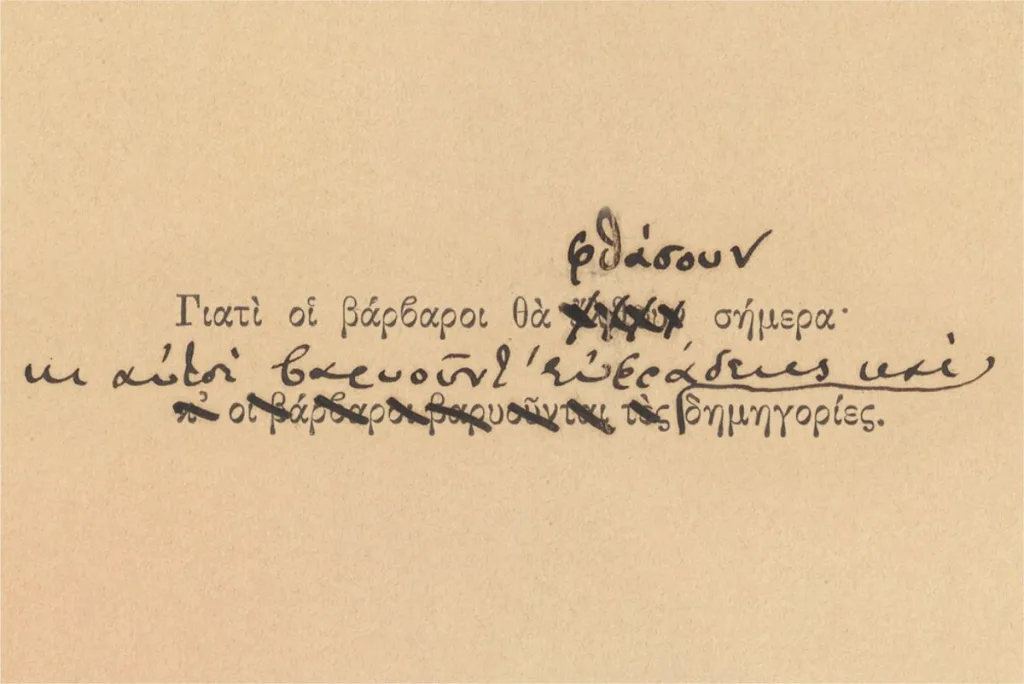 φθάσουν
Γιατὶ οἱ βάρβαροι θὰ σήμερα·
κι αὐτοὶ βαρυοῦντ’ εὐφράδειες καὶ
κ’ οι βάρβαροι βαρυοῦνται τὲς δημηγορίες.